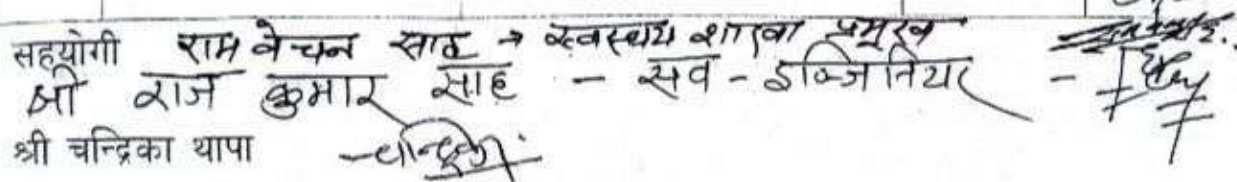 सहयोगी राम वेचन साह → स्वास्थय शाखा प्रमुख
श्री राज कुमार साह - सव - इञ्जिनियर -
श्री चन्द्रिका थापा